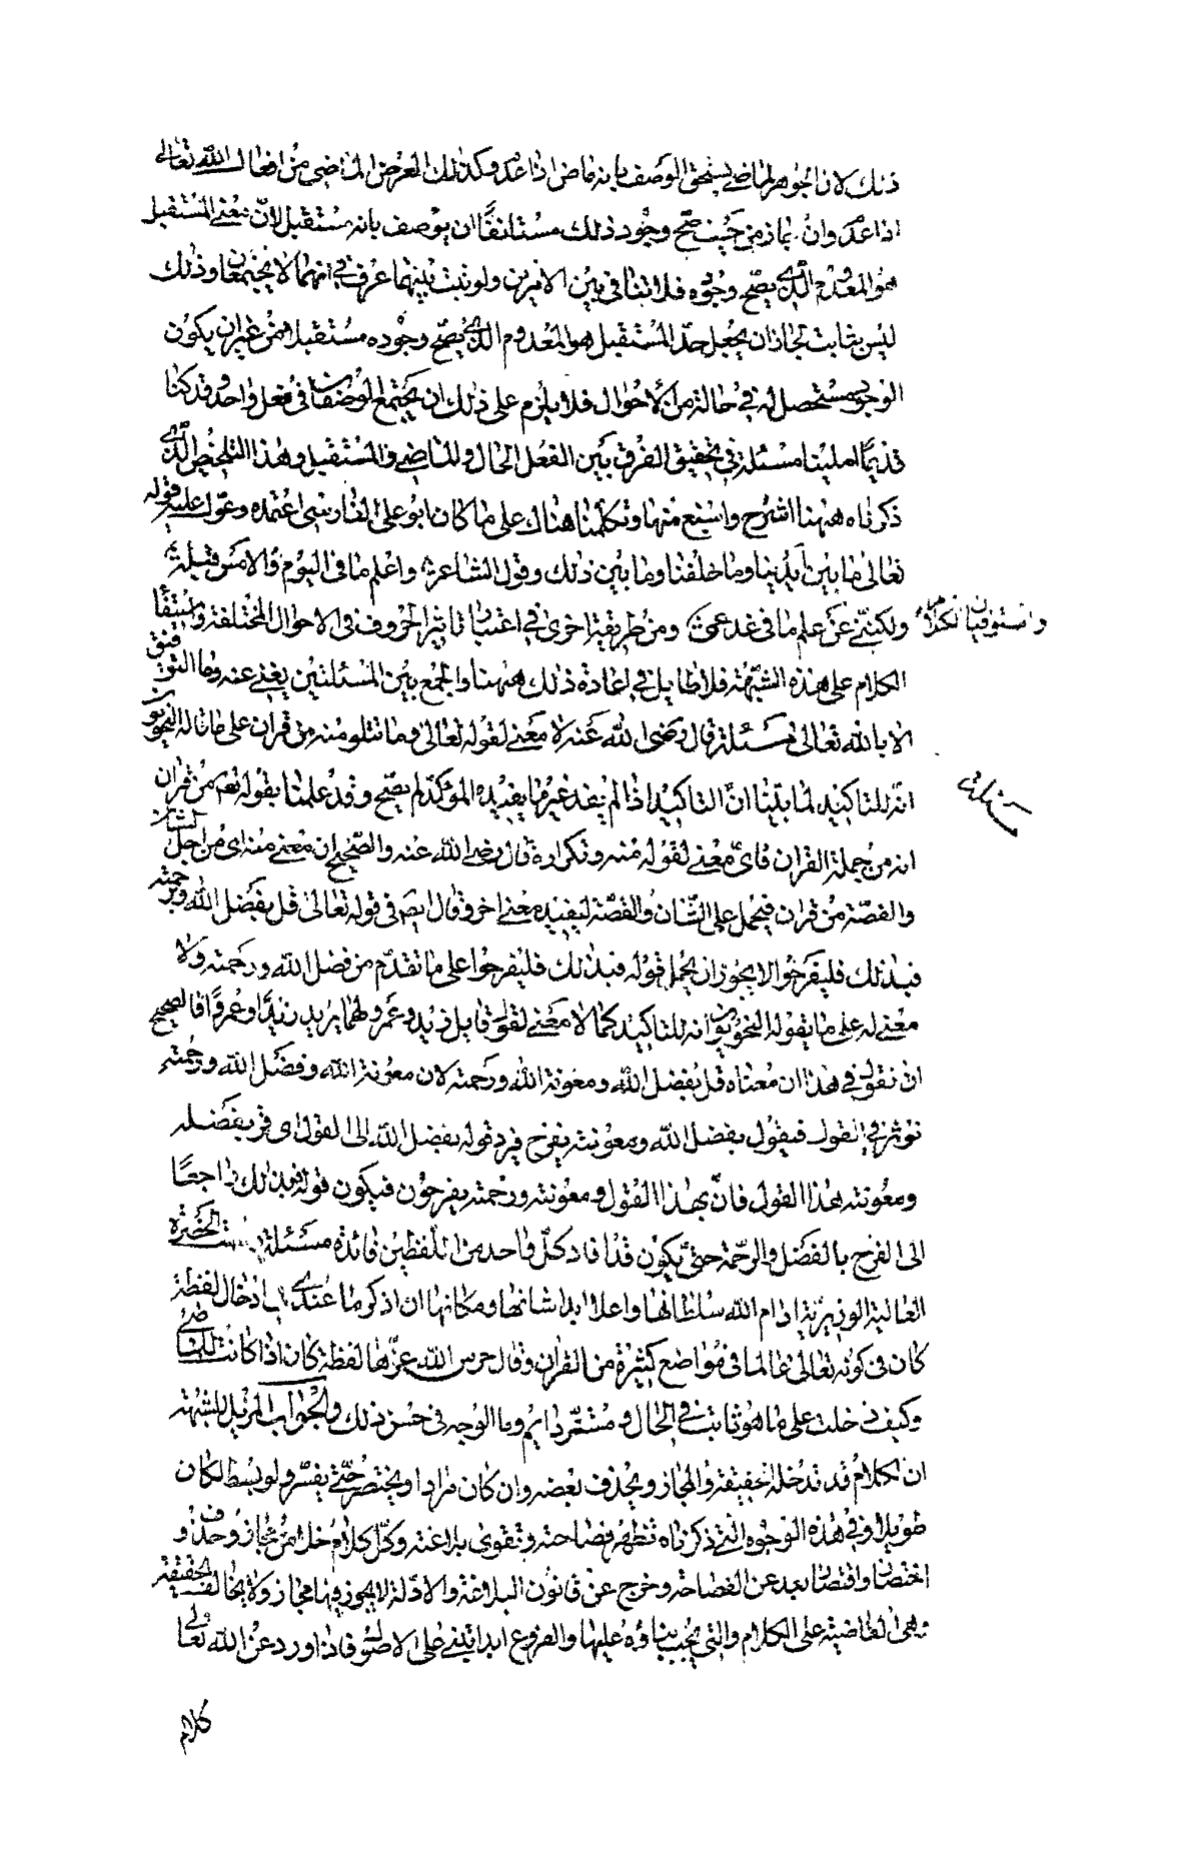 ذلك لان الجوهر الماضي يستحق الوصف بانه ماض اذا عدم وكذلك العرض الماضي من افعال الله تعالى
اذا عدم وان جاز من حيث صح وجود ذلك مستانفا ان يوصف بانه مستقبل لان معنى المستقبل
هو المعدوم الذي يصح وجوده فلا تنافي بين الامرين ولو ثبت بينهما عرف في انهما لا يجتمعان وذلك
ليس بثابت لجاز ان يجعل حد المستقبل هو المعدوم الذي يصح وجوده مستقبلا من غير ان يكون
الوجود مستحصل له في حالة من الاحوال فلا يلزم على ذلك ان يجتمع الوصفان في فعل واحد وقد كنا
قديما املينا مسئلة في تحقيق الفرق بين الفعل الحال والماضي والمستقبل وهذا التلخيص الذي
ذكرناه ههنا اشرح واسبغ منها وتكلمنا هناك على ما كان ابو علي الفارسي اعتمده وعول عليه قوله
تعالى ما بين ايدينا وما خلفنا وما بين ذلك وقول الشاعر واعلم ما في اليوم والامس قبله
ولكنني عن علم ما في غد عمي ومن طريقة اخرى في اعتبار تاثير الحروف في الاحوال المختلفة واستيفا
واستوفينا الكلام
الكلام على هذه الشبهة فلا طايل في اعادة ذلك ههنا والجمع بين المسئلتين يغني عنه وما التوفيق
الا بالله تعالى مسئلة قال رضي الله عنه لا معنى لقوله تعالى وما تتلو منه من قران على ما قاله النحويون
مسئلة
انه للتاكيد لما بينا ان التاكيد اذا لم يفد غير ما يفيده الموكد لم يصح وقد علمنا بقوله تعم من قران
انه من جملة القران فاي معنى لقوله منه وتكراره قال رضي الله عنه والصحيح ان معنى منه اي من اجل الشان
والقصة من قران فيحمل على الشان والقصة ليفيد معنى اخر وقال ايضم في قوله تعالى قل بفضل الله وبرحمته
فبذلك فليفرحوا لا يجوز ان يحمل قوله فبذلك فليفرحوا على ما تقدم من فضل الله ورحمته ولا
معنى له على ما يقوله النحويون انه للتاكيد كما لا معنى لقول قايل زيد وعمرو لهما يريد زيدا وعمروا فالصحيح
ان نقول في هذا ان معناه قل بفضل الله ومعونة الله ورحمته لان معونة الله وفضل الله ورحمته
توثر في القول فيقول بفضل الله ومعونته يفرح فيرد قوله بفضل الله الى القول اي قل بفضله
ومعونته هذا القول فان بهذا القول ومعونته ورحمته يفرحون فيكون قوله فبذلك راجعا
الى الفرح بالفضل والرحمة حتى يكون قد افاد كل واحد من اللفظين فائدة مسئلة الحضرة
العالية الوزيرية ادام الله سلطانها واعلا ابدا شانها ومكانها ان اذكر ما عندي في ادخال لفظة
كان في كونه تعالى عالما في مواضع كثيرة من القران وقال حرس الله عزها لفظة كان اذا كانت للماضي
وكيف دخلت على ما هو ثابت في الحال ومستمر دايم وما الوجه في حسن ذلك والجواب المزيل للشبهة
ان الكلام قد تدخله الحقيقة والمجاز ويحذف بعضه وان كان مرادا ويختصر حتى يفسر ولو بسط لكان
طويلا وفي هذه الوجوه التي ذكرناه تظهر فصاحته وتقوى بلاغته وكل كلام خلا من مجاز وحذف و
اختصار واقتصار بعد عن الفصاحة وخرج عن قانون البلاغة والادلة لا يجوز فيها مجاز ولا يخالف الحقيقة
وهي القاضية على الكلام والتي يجب بناؤه عليها والفروع ابدا تبنى على الاصول فاذا ورد عن الله تعالى
كلام